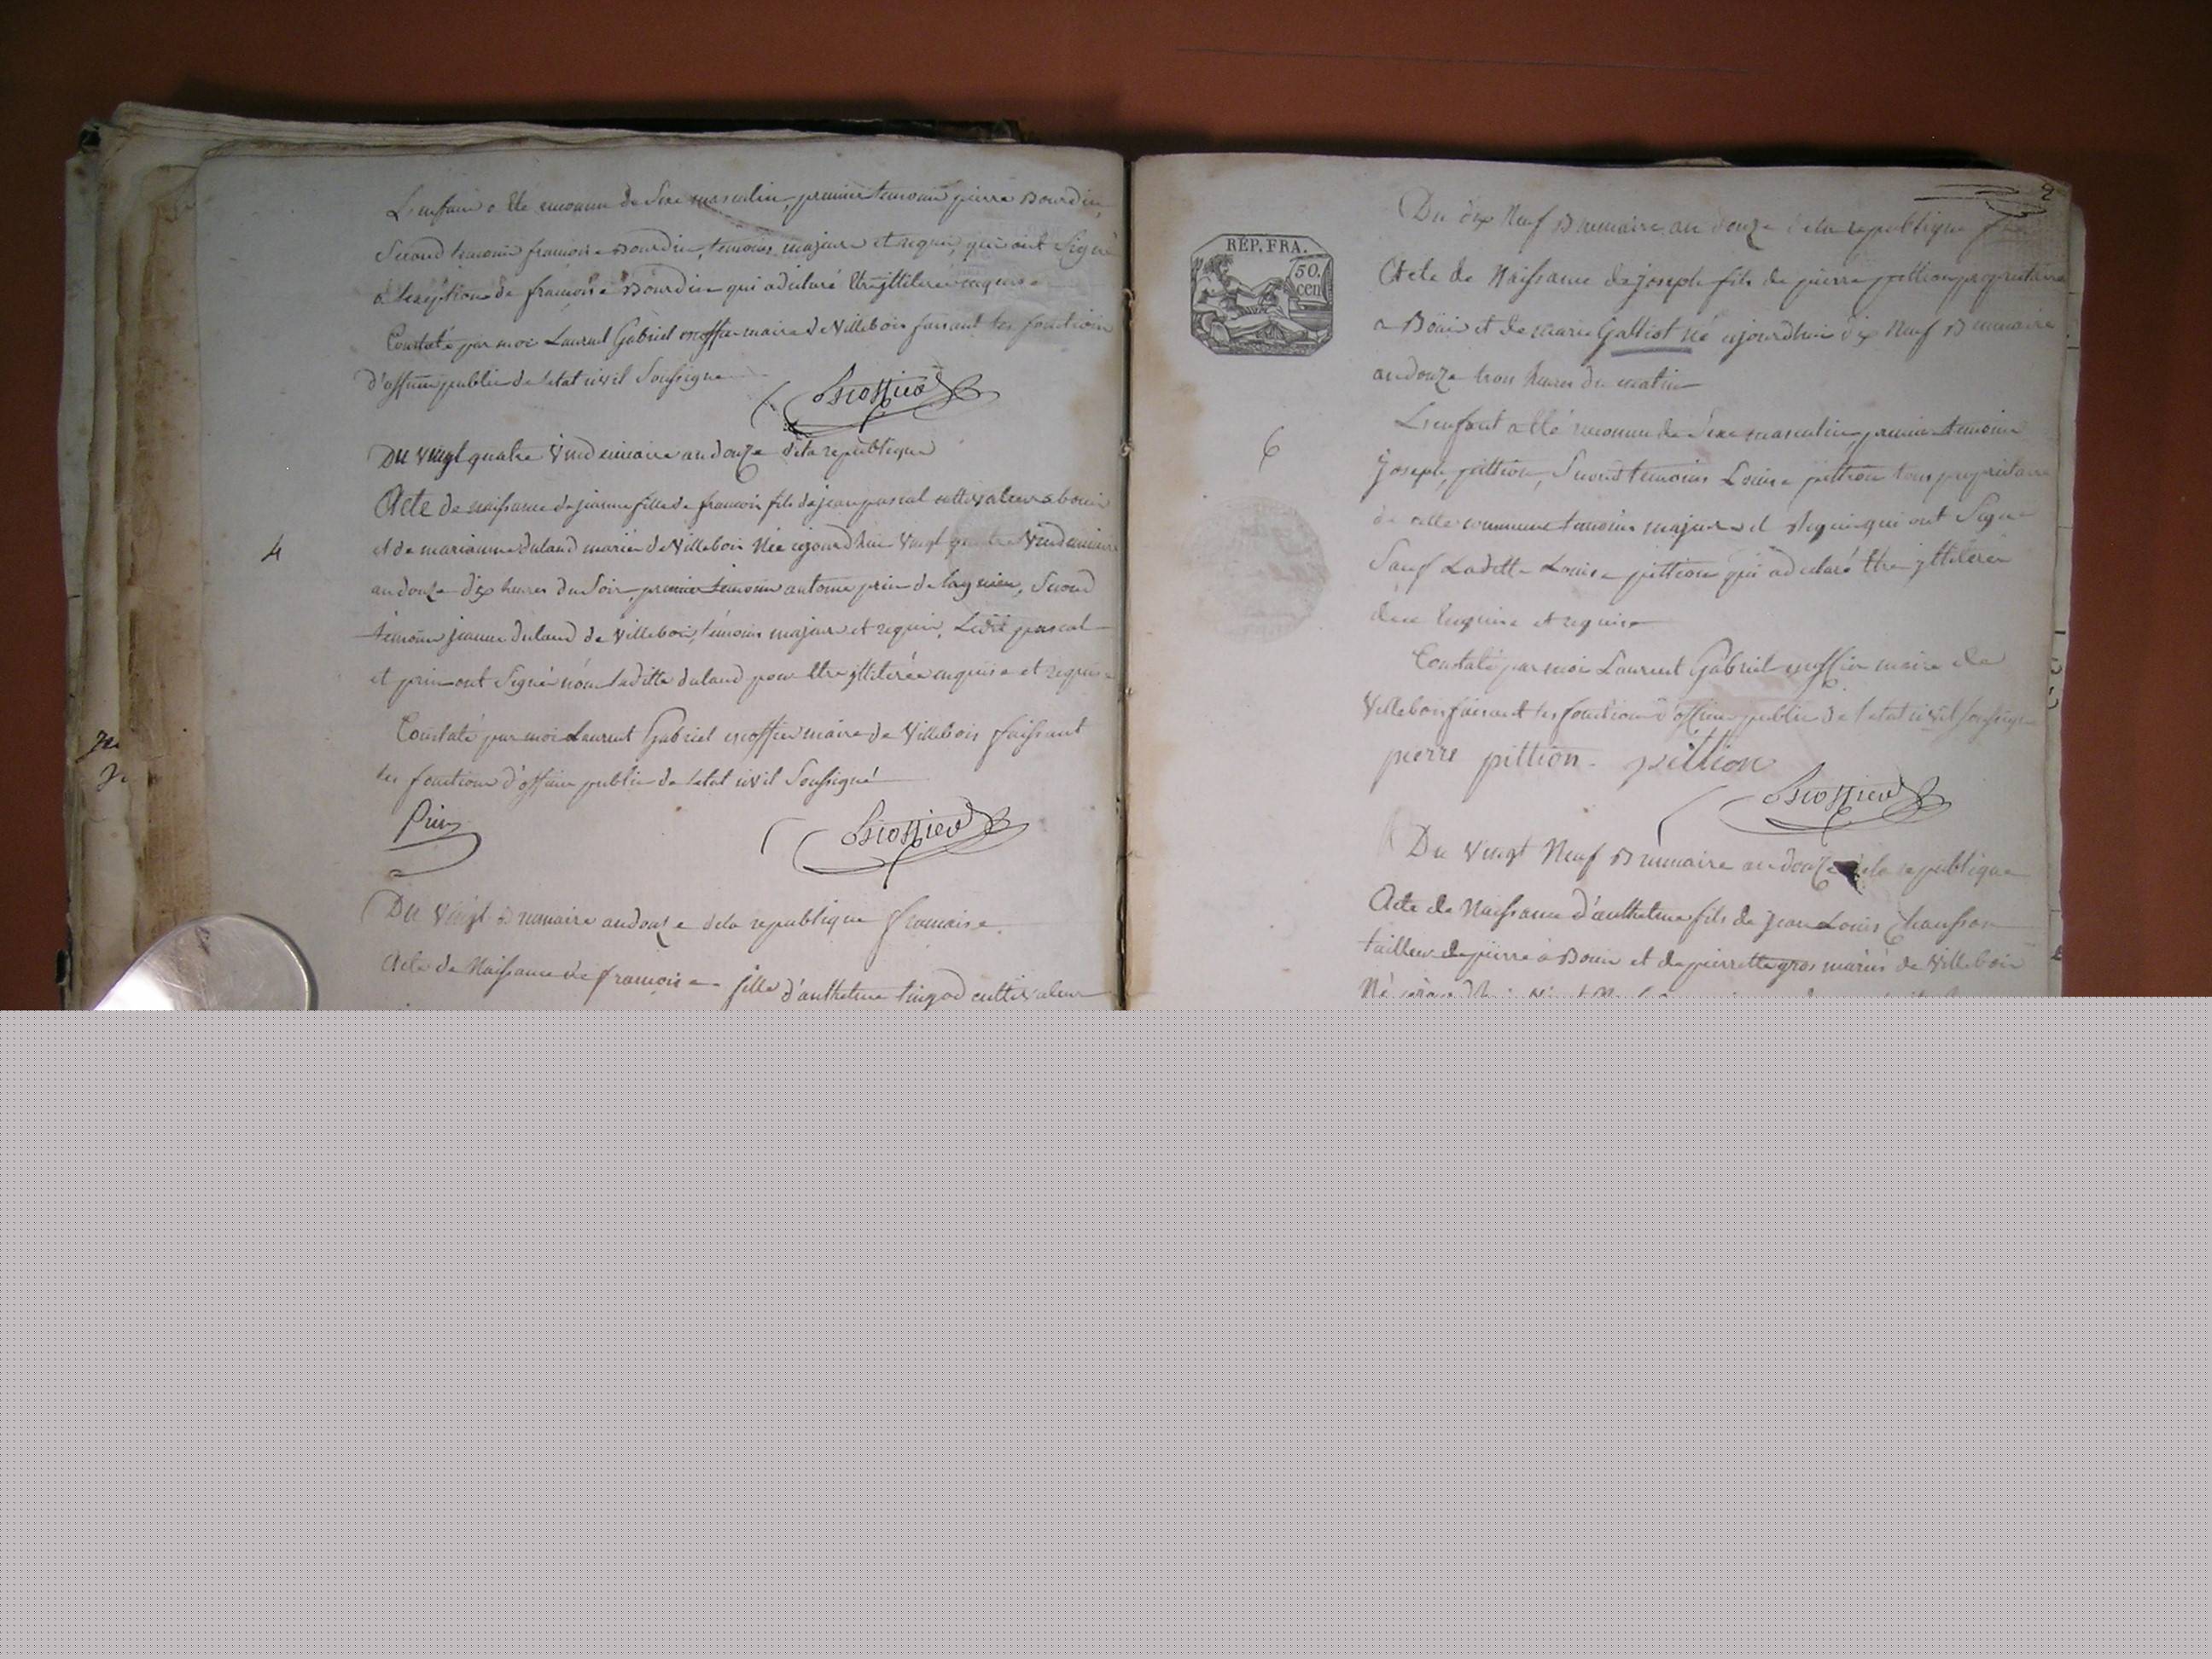 L'enfant a été reconnu de Sexe masculin, premier temoin pierre Bourdin,
Second temoin francoise Bourdin, temoins majeurs et requis, qui ont Signé
a l'exeption de francoise Bourdin qui a declaré être illiterée enquise
Constaté par moi Laurent Gabriel escoffier maire de Villebois faisant les fonctions
d'officier public de l'etat civil Soussigné
Escoffier
Du Vingt quatre Vendemiaire an douze de la republique
4
Acte de naissance de jeanne fille de francois fils de jean pascal cultivateur a bouis
et de marianne duland mariés de Villebois Née ajourd'hui Vingt quatre Vendemiaire
an douze dix heures du Soir, premier temoin antoine prin de lagnieu, Second
temoin jeanne duland de Villebois, témoins majeurs et requis, Ledit pascal
et prin ont Signé non laditte duland pour être illiterée enquise et requise
Constaté par moi Laurent Gabriel escoffier maire de Villebois faissant
les fonctions d'officier public de l'etat civil Soussigné
Prin
Escoffier
Du Vingt Brumaire an douze de la republique francaise
Acte de Naissance de francoise fille d'anthelme cultivateur
2
Du dix Neuf Brumaire an douze de la republique
RÉP. FRA.
50.
cen
Acte de Naissance de joseph fils de pierre pittion propriétaire
a Bouis et de marie Galliot né ajourdhui dix Neuf Brumaire
an douze trois heures du matin
6
L'enfant a été reconnu de Sexe masculin, premier temoin
joseph pittion, Second temoins Louise pittion tous propriétaire
de cette commune temoins majeurs et requis qui ont Signé
Sauf Laditte Louise pittion qui a declaré être illiterée
de ce enquise et requise
Constaté par moi Laurent Gabriel escoffier maire de
Villebois faisant les fonctions d'officier public de l'etat civil soussigné
pierre pittion - pittion
Escoffier
Du Vingt Neuf Brumaire an douze de la republique
Acte de Naissance d'anthelme fils de jean Louis Chausson
tailleur de pierre a Bouis et de pierrette gros mariés de Villebois